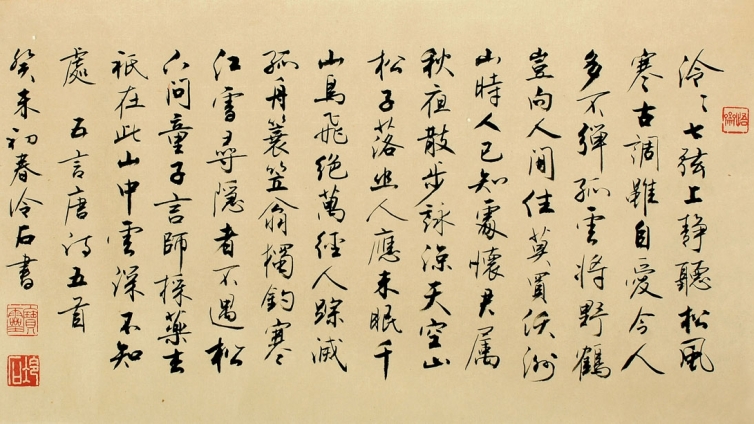 泠〻七弦上静聽松風
寒古調雖自愛今人
多不彈孤雲將野鶴
豈向人間住莫買沃洲
山時人已知處懷君属
秋夜散步詠涼天空山
松子落幽人應未眠千
山鳥飛絶萬徑人踪滅
孤舟蓑笠翁獨釣寒
江雪尋隱者不遇松
下問童子言師採藥去
祇在此山中雲深不知
處 五言唐詩五首
癸未初春冷石書